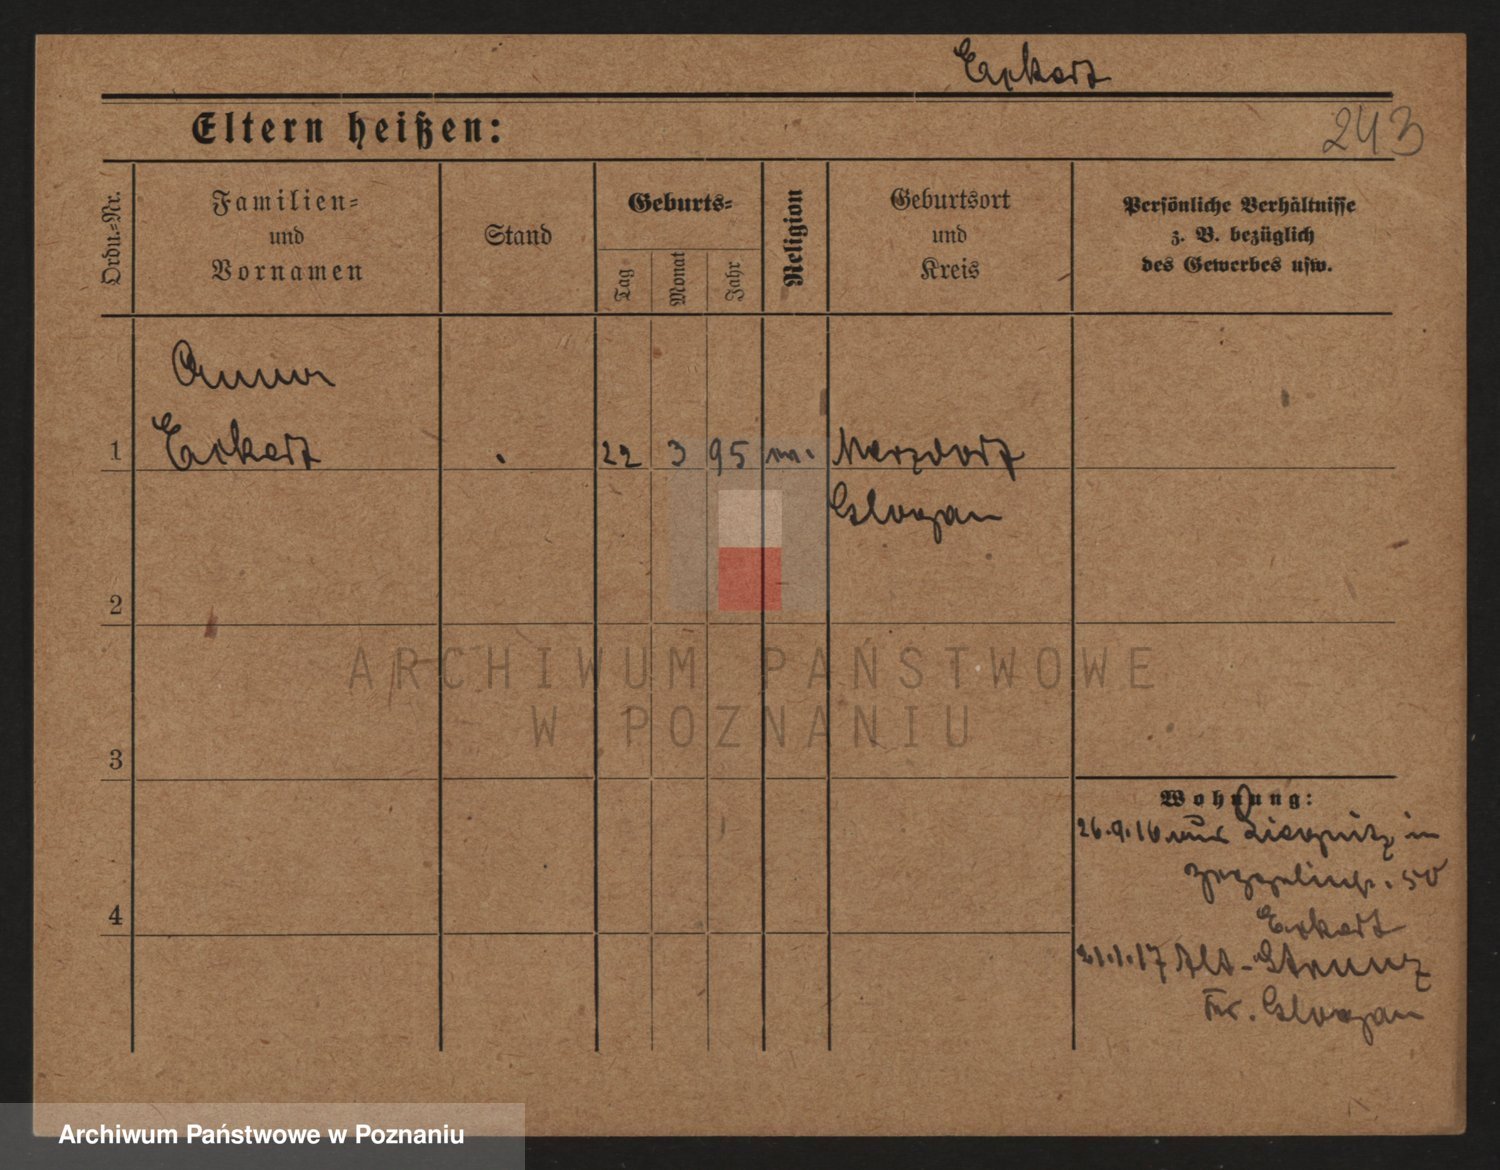 Eckert
243
Eltern heißen:
Ordn.-Nr.
Familien-
und
Vornamen
Stand
Geburts-
Tag
Monat
Jahr
Religion
Geburtsort
und
Kreis
Persönliche Verhältnisse
z. B. bezüglich
des Gewerbes usw.
Anna
1 Eckert 22 3 95 Merzdorf
Glogau
2
3
4
Wohnung:
26.9.16 Liegnitz in
50
Eckert
21.1.17 Alt-Strunz
Kr. Glogau
ARCHIWUM PAŃSTWOWE
W POZNANIU
Archiwum Państwowe w Poznaniu